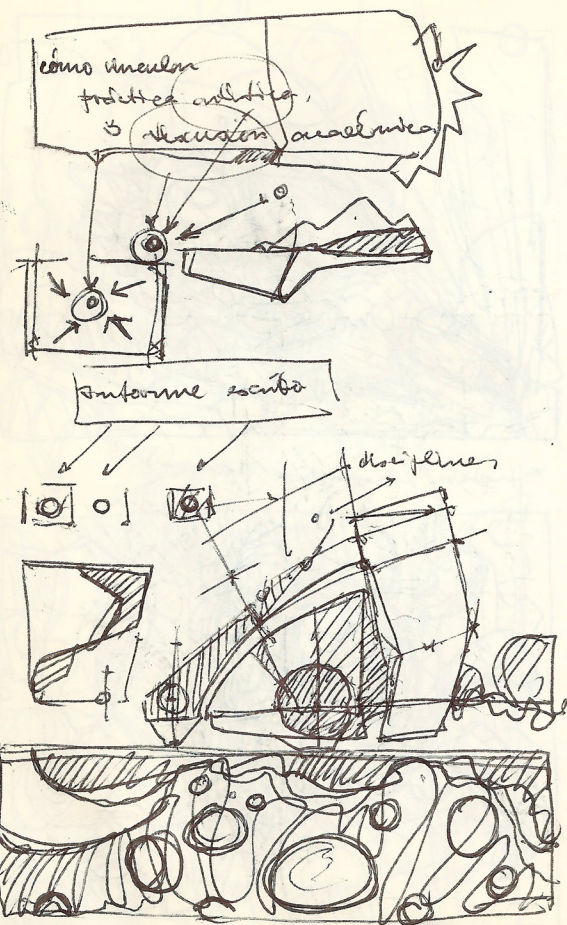 cómo vincular
práctica artística,
discusión académica
Informe escrito
disciplines